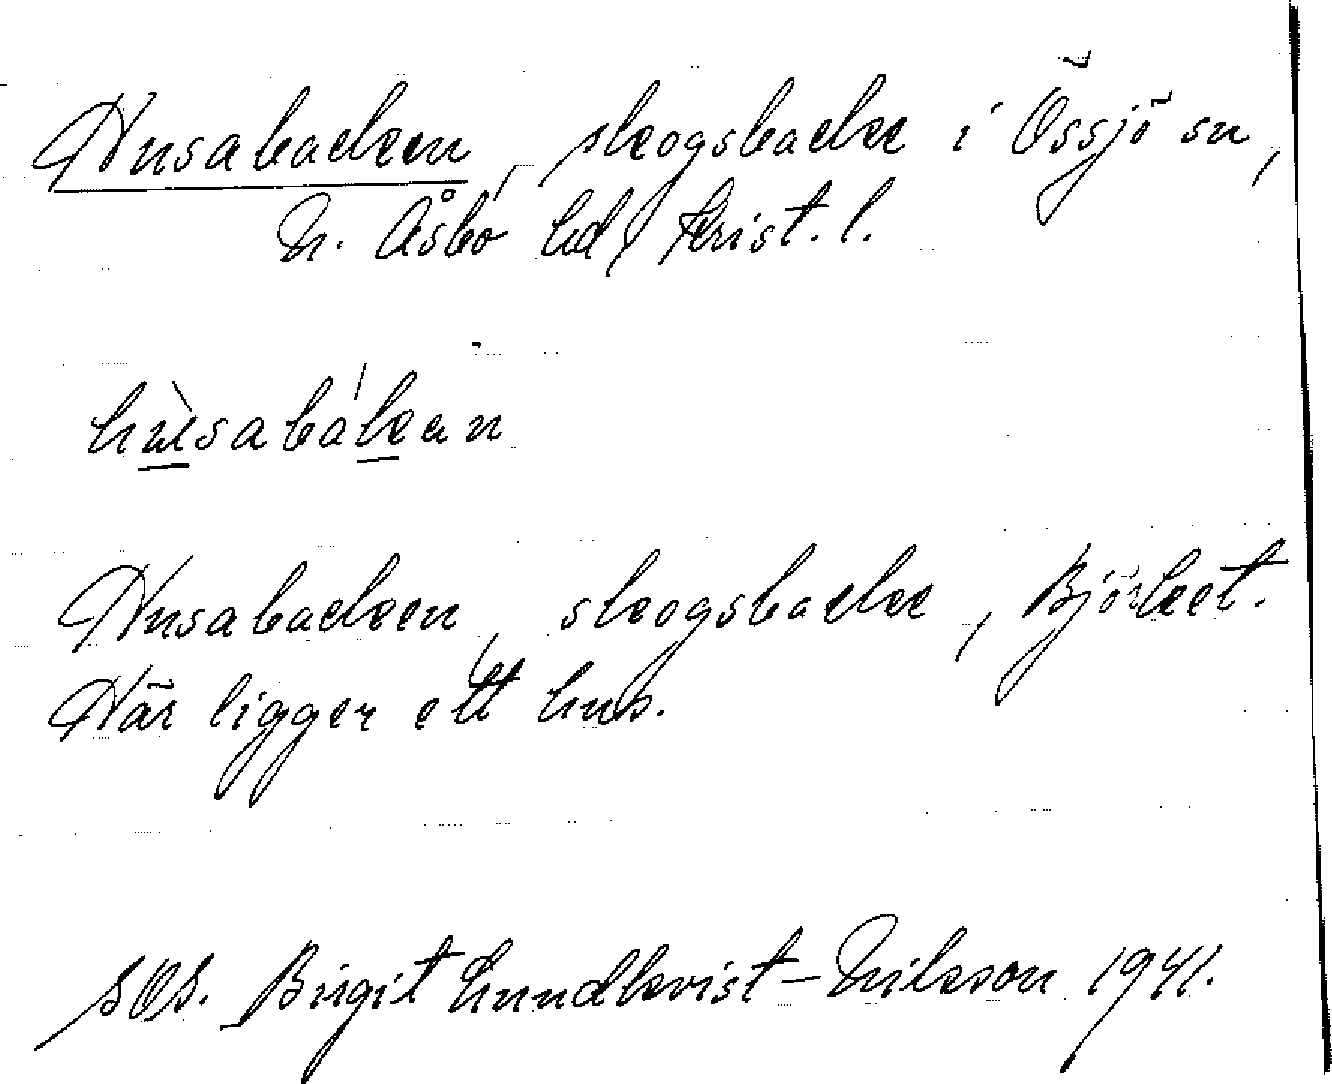 Husabacken, skogsbacke i Össjö sn,
N. Åsbo hd, Krist. l.
Husabacken, skogsbacke, Björket.
Här ligger ett hus.
SOS. Birgit Lundkvist-Nilsson 1941.